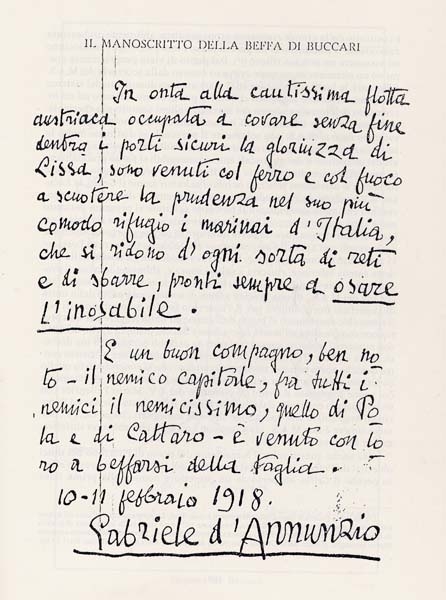 IL MANOSCRITTO DELLA BEFFA DI BUCCARI
In onta alla cautissima flotta
austriaca occupata a covare senza fine
dentro i porti sicuri la gloriuzza di
Lissa, sono venuti col ferro e col fuoco
a scuotere la prudenza nel suo più
comodo rifugio i marinai d'Italia,
che si ridono d'ogni sorta di reti
e di sbarre, pronti sempre a osare
l'inosabile.
E un buon compagno, ben no
to - il nemico capitale, fra tutti i
nemici il nemicissimo, quello di Po
la e di Cattaro - è venuto con lo
ro a beffarsi della taglia.
10-11 febbraio 1918.
Gabriele d'Annunzio